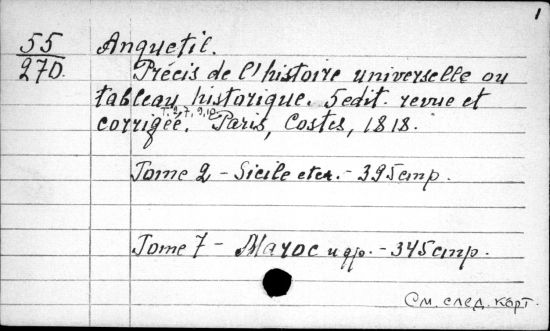 1
55
270.
Anquetil.
Précis de l'histoire universelle ou
tableau historique. 5 edit. revue et
T. 2, 7, 9, 10.
corrigée. Paris, Costes, 1818.
Tome 2 - Sicile etc. - 395 стр.
Tome 7 - Maroc и др. - 345 стр.
См. след. карт.